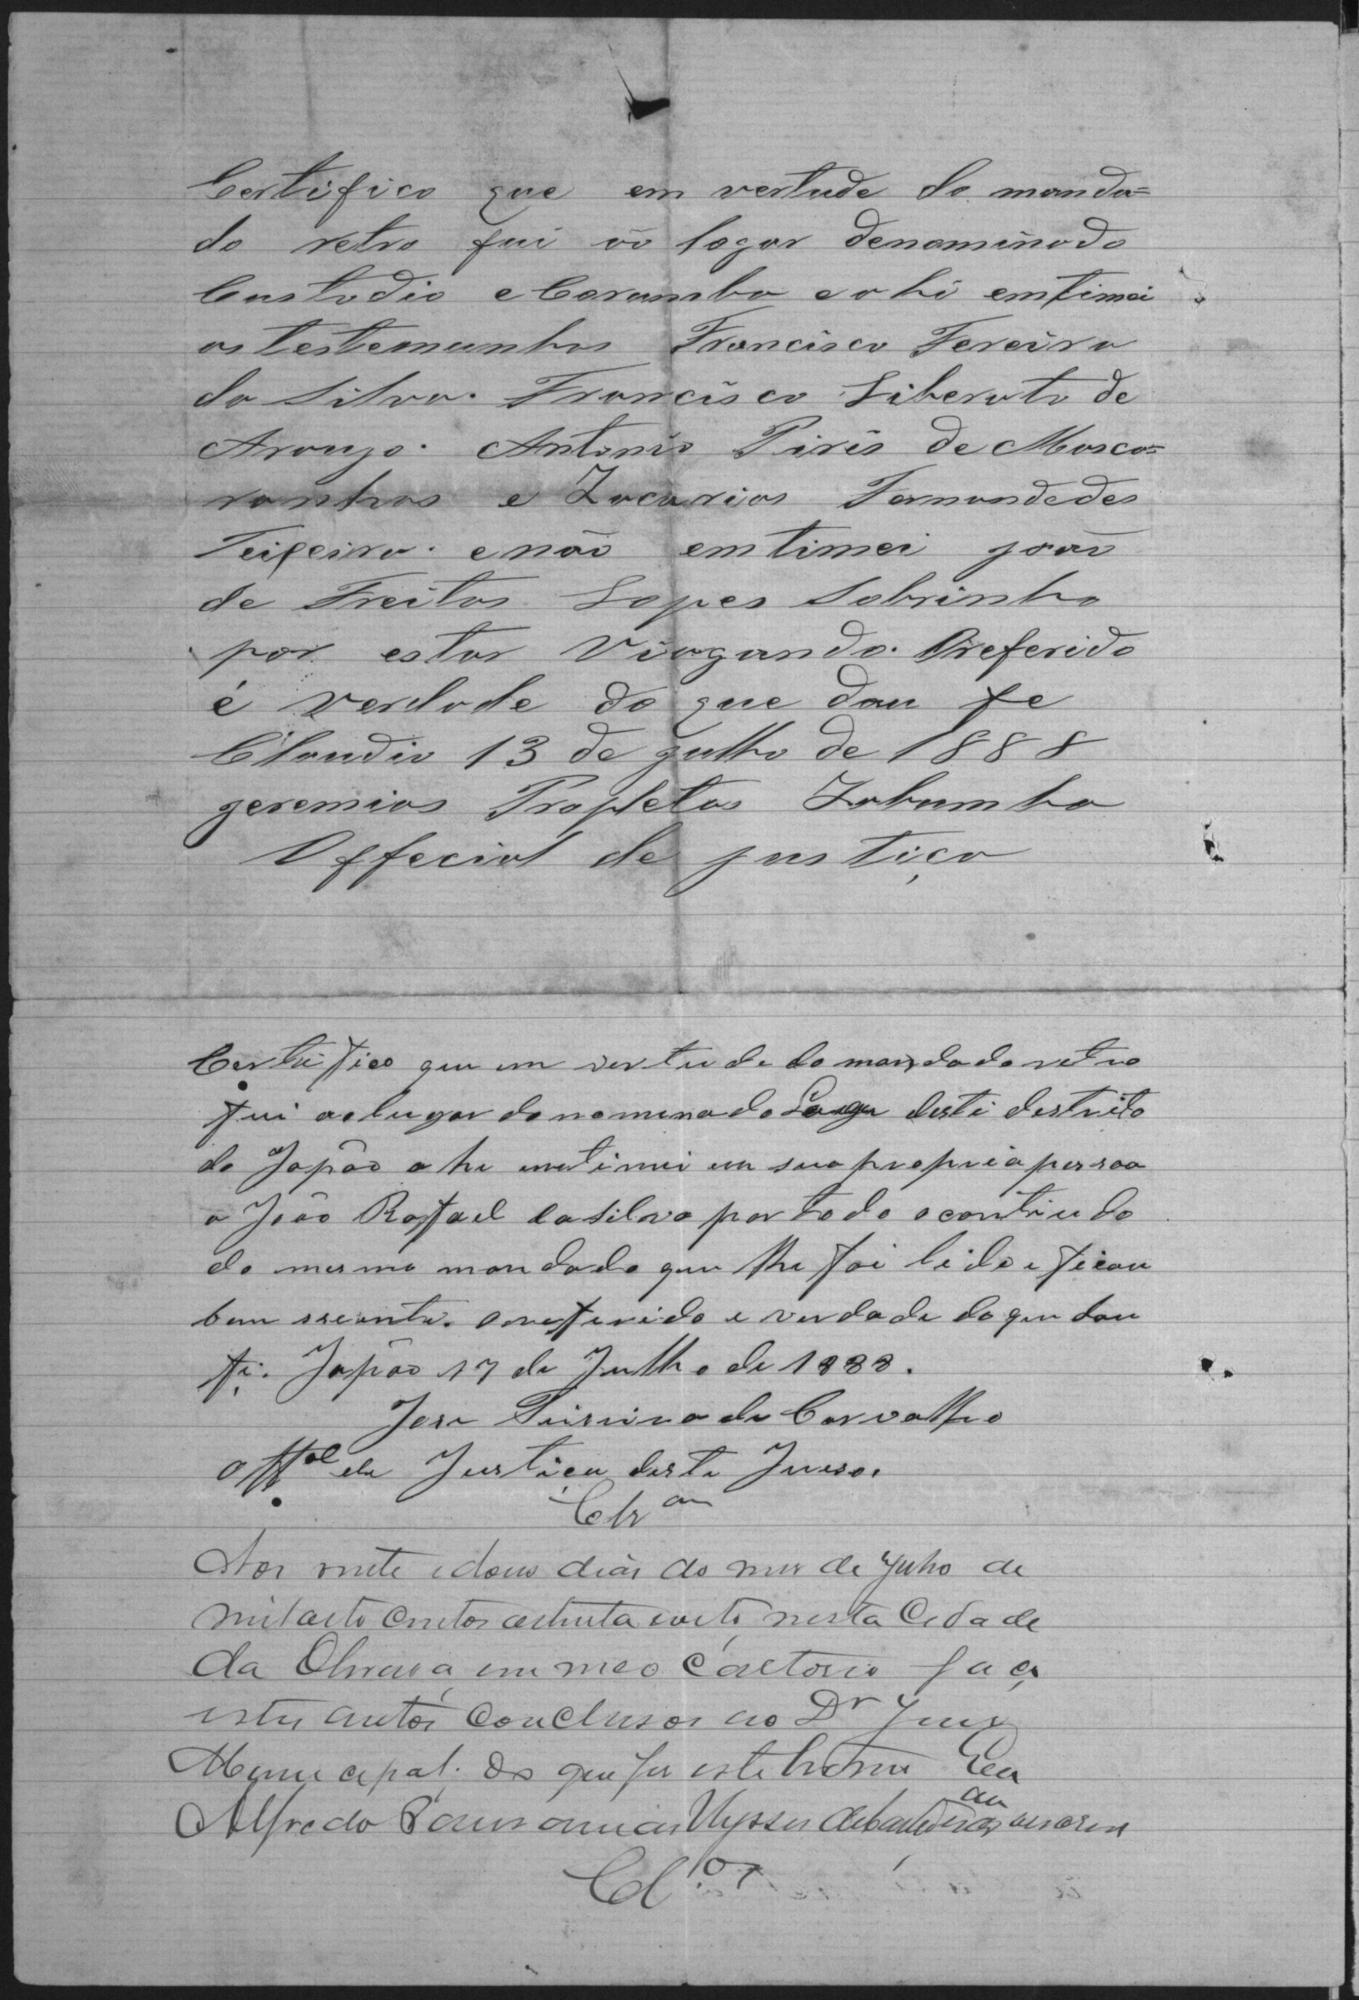 Certifico que em vertude do manda=
do retro fui ão logar denominado
Custodio e Carambo e ahi emtimei
as testemunhas Francisco Fereira
da Silva. Francisco Liberato de
Araujo. Antonio Piris de Masca=
ranhas e Zacarias Fernandedes
Teixeira. e não emtimei joão
de Freitas Lopes Sobrinho
por estar viagando. O referido
é verdade do que dou fe
Claudio 13 de julho de 1888
geremias Prophetas Zabumba
Offecial de justiça
Certifico que em vertude do mandado retro
fui ao lugar denomenado deste destrito
do Japão ahi entimei em sua propria pessoa
a João Rafael da Silva por todo o contiudo
do mesmo mandado que lhe foi lido e ficou
bem sciente. O referido e verdade do que dou
fé. Japão 17 de Julho de 1888.
José de Carvalho
Offal de Justiça deste Juiso.
Clsam
Aos vinte e dous dias do mes de Julho de
mil oito centos oitenta e oito, nesta Cidade
da Oliveira, em meo Cartorio faço
estes autos conclusos ao Dr Juiz
Municipal. Do que fis este termo Eu
Alfredo Pausanias Ulysses
Clos